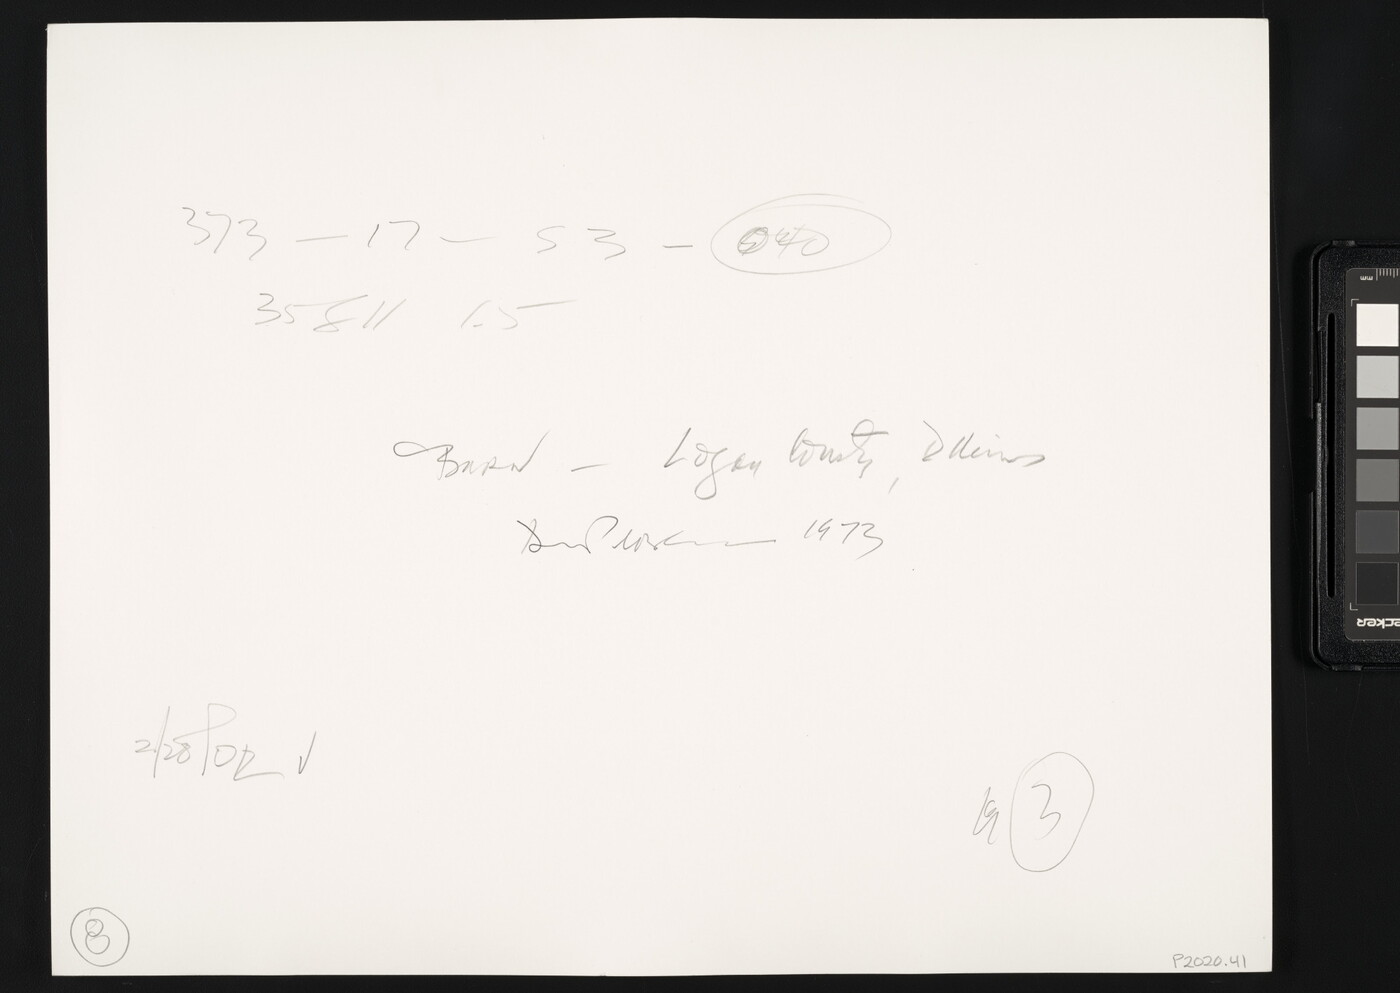 373 — 17 — 53 — 040
35811 1.5
BARN — Logan County, Illinois
1973
2/28
19 3
8
P2020.41
mm
ECKER